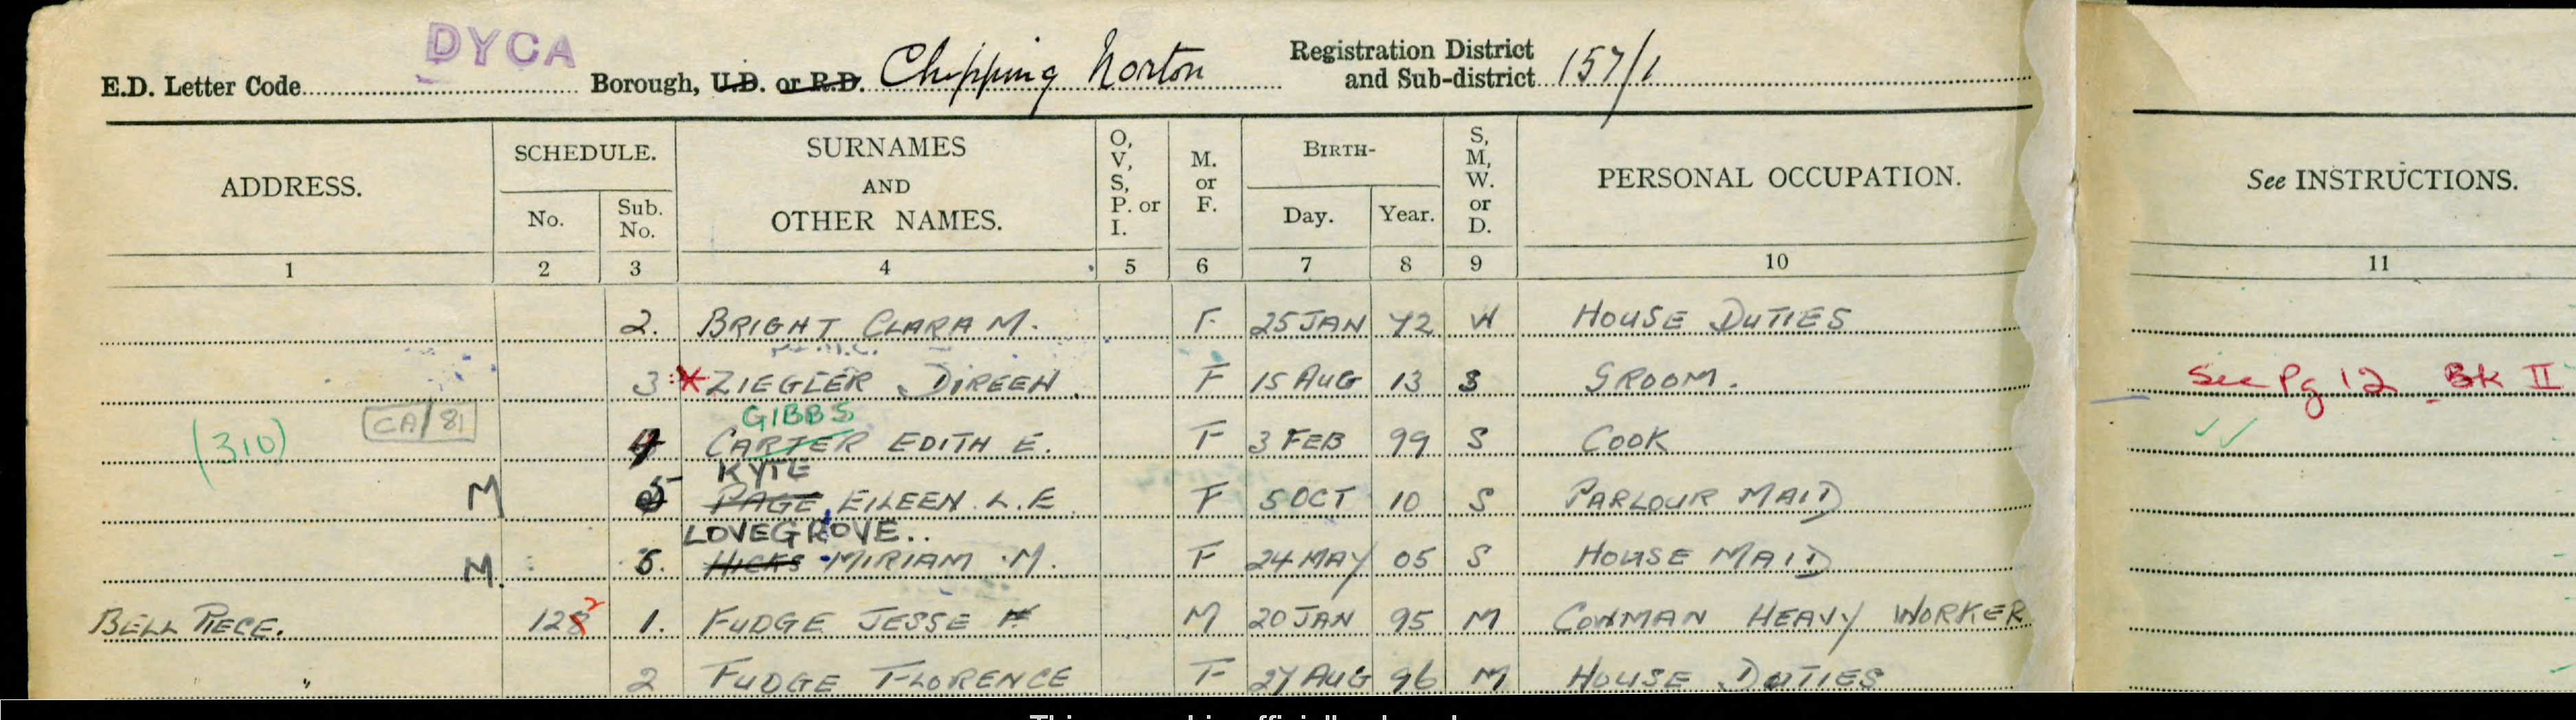 DYCA
E.D. Letter Code Borough, U.D. or R.D. Chipping Norton Registration District and Sub-district 157/1
ADDRESS. SCHEDULE. No. Sub. No. SURNAMES AND OTHER NAMES. O, V, S, P. or I. M. or F. BIRTH- Day. Year. S, M, W. or D. PERSONAL OCCUPATION. See INSTRUCTIONS.
1 2 3 4 5 6 7 8 9 10 11
2. BRIGHT CLARA M. F 25 JAN 72 W HOUSE DUTIES
3 X ZIEGLER DIREEN F 15 AUG 13 S GROOM. See Pg 12 Bk II
GIBBS
(310) CA/81 4 CARTER EDITH E. F 3 FEB 99 S COOK
KYTE
M 5 PAGE, EILEEN. L. E F 5 OCT 10 S PARLOUR MAID
LOVEGROVE..
M. 6. HICKS MIRIAM M. F 24 MAY 05 S HOUSE MAID
BELL PIECE. 128 2 1. FUDGE JESSE M 20 JAN 95 M COWMAN HEAVY WORKER
" 2 FUDGE FLORENCE F 27 AUG 96 M HOUSE DUTIES